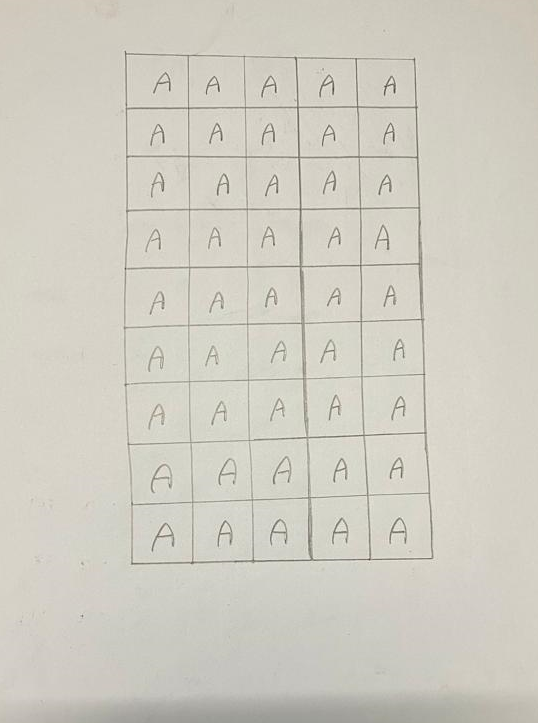 A A A A A
A A A A A
A A A A A
A A A A A
A A A A A
A A A A A
A A A A A
A A A A A
A A A A A